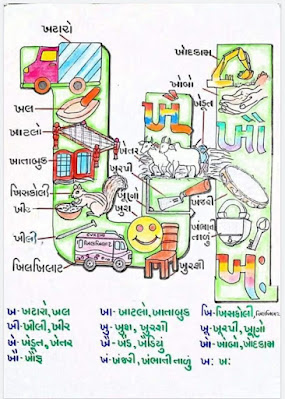 ખટારો
ખોદકામ
ખોબો
ખેડૂત
ખલ
ખાટલો
ખાતાબુક
ખેતર
ખુરપી
ખિસકોલી
ખીર
ખૂણો
ખુશ
ખંજરી
ખંભાતી
તાળું
ખીલી
ખિલખિલાટ
ખુરશી
ખૌ
ખં
ખ - ખટારો, ખલ ખા - ખાટલો, ખાતાબુક ખિ - ખિસકોલી,
ખી - ખીલી, ખીર ખુ - ખુશ, ખુરશી ખૂ - ખૂરપી, ખૂણો
ખે - ખેડૂત, ખેતર ખૈ - ખો - ખોબો, ખોદકામ
ખૌ - ખં - ખંજરી, ખંભાતી તાળું ખઃ ખઃ